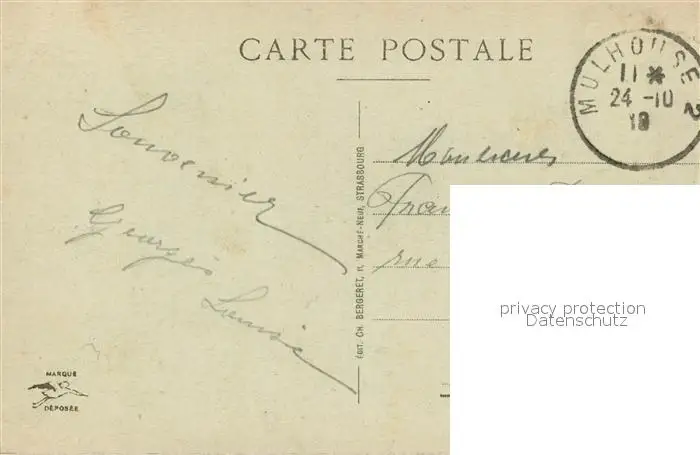 CARTE POSTALE
MULHOUSE 2
11 *
24 -10
19
Souvenir
Georges
Louise
Monsieur
Fran
rue
ÉDIT. CH. BERGERET, 11, MARCHÉ-NEUF, STRASBOURG
MARQUE
DÉPOSÉE
privacy protection
Datenschutz